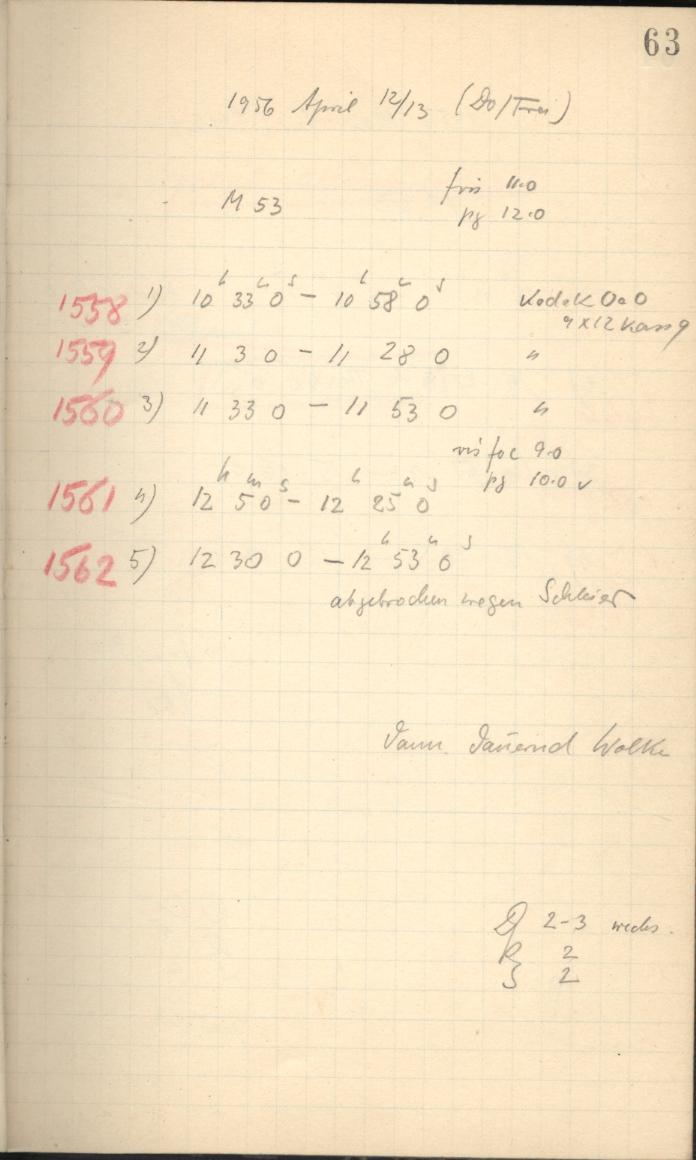 63
1956 April 12/13 (Do/Frei)
M 53
11.0
pg 12.0
1558 1) 10h 33m 0s – 10h 58m 0s Kodak OaO
9x12 Kass 9
1559 2) 11 3 0 – 11 28 0 "
1560 3) 11 33 0 – 11 53 0 "
vis foc 9.0
pg 10.0 v
1561 4) 12h 5m 0s – 12h 25m 0s
1562 5) 12 30 0 – 12h 53m 0s
abgebrochen wegen Schleier
Dann dauernd Wolke
D 2-3 wechs.
R 2
S 2